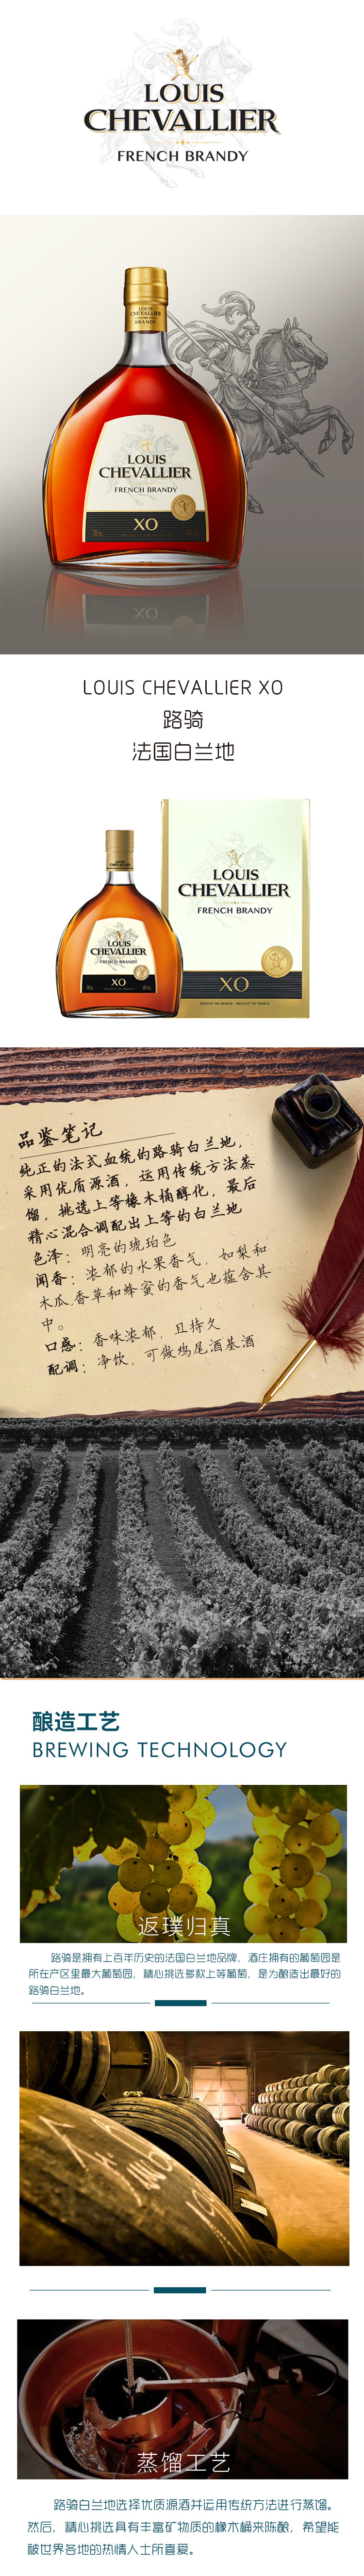 LOUIS
CHEVALLIER
FRENCH BRANDY
LOUIS
CHEVALLIER
BRANDY
LOUIS
CHEVALLIER
FRENCH BRANDY
XO
PRODUCT OF FRANCE
XO
LOUIS CHEVALLIER XO
路骑
法国白兰地
LOUIS
CHEVALLIER
FRENCH BRANDY
XO
LOUIS
CHEVALLIER
FRENCH BRANDY
XO
PRODUCT OF FRANCE - PRODUCT OF FRANCE
品鉴笔记
纯正的法式血统的路骑白兰地，
采用优质源酒，运用传统方法蒸
馏，挑选上等橡木桶醇化，最后
精心混合调配出上等的白兰地
色泽：明亮的琥珀色
闻香：浓郁的水果香气，如梨和
木瓜，香草和蜂蜜的香气也蕴含其
中。
口感：香味浓郁，且持久
配调：净饮，可做鸡尾酒基酒
酿造工艺
BREWING TECHNOLOGY
返璞归真
路骑是拥有上百年历史的法国白兰地品牌，酒庄拥有的葡萄园是
所在产区里最大葡萄园，精心挑选多款上等葡萄，是为酿造出最好的
路骑白兰地。
蒸馏工艺
路骑白兰地选择优质源酒并运用传统方法进行蒸馏。
然后，精心挑选具有丰富矿物质的橡木桶来陈酿，希望能
被世界各地的热情人士所喜爱。